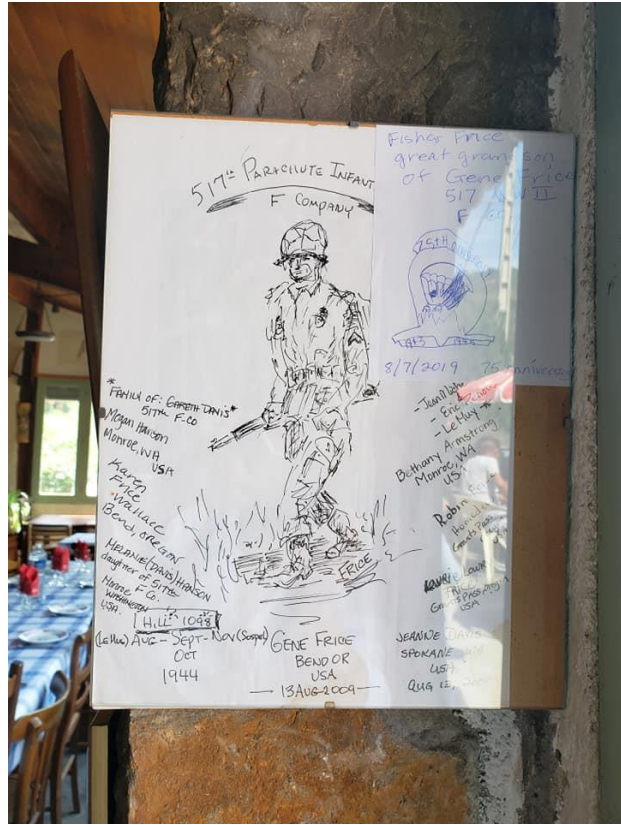 517th PARACHUTE INFANT
F COMPANY
Fisher Frice
great grandson
of Gene Frice
517 WWII
F co
75th anniversary
1943 1944
8/7/2019 75 anniversary
*FAMILY OF: GARETH DAVIS*
517th F-CO
Megan Hanson
Monroe, WA
USA
Karen
Frice
Wallace
Bend, OREGON
MELANIE (DAVIS) HANSON
daughter of 517th
F Co.
Monroe
WASHINGTON
USA.
HILL 1098
(Le Muy) AUG - SEPT - NOV (Sospel)
OCT
1944
FRICE
GENE FRICE
BEND OR
USA
13 AUG 2009
- Jean Michel
- Eric
- Le Muy
Bethany Armstrong
Monroe, WA
USA
Robin
Grants Pass
Laurie
FRICE
Grants Pass, Oregon
USA
JEANNE DAVIS
SPOKANE WA
USA
AUG 12, 200